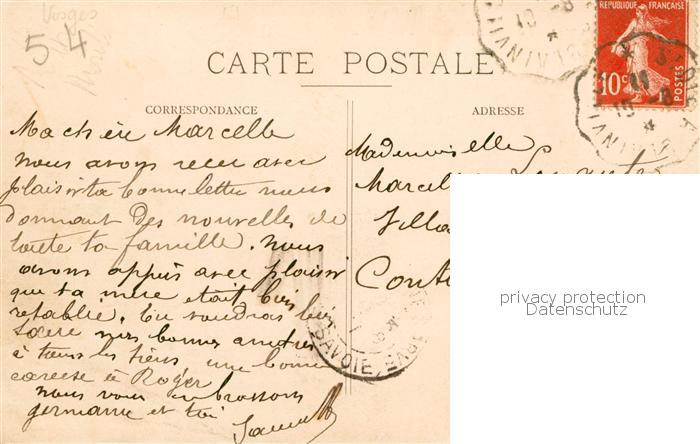 Vosges
54
RÉPUBLIQUE FRANÇAISE
10c
POSTES
CARTE POSTALE
CORRESPONDANCE
ADRESSE
Ma chère Marcelle
nous avons recu avec
plaisir ta bonne lettre nous
donnant des nouvelles de
toute ta famille. nous
avons appris avec plaisir
que ta mère était bien
retablie. Tu voudras bien
faire nos bonnes amitiés
à tous les tiens une bonne
caresse à Roger
nous vous embrassons
germaine et toi
Mademoiselle
Marcelle
Villa
SAVOIE
privacy protection
Datenschutz